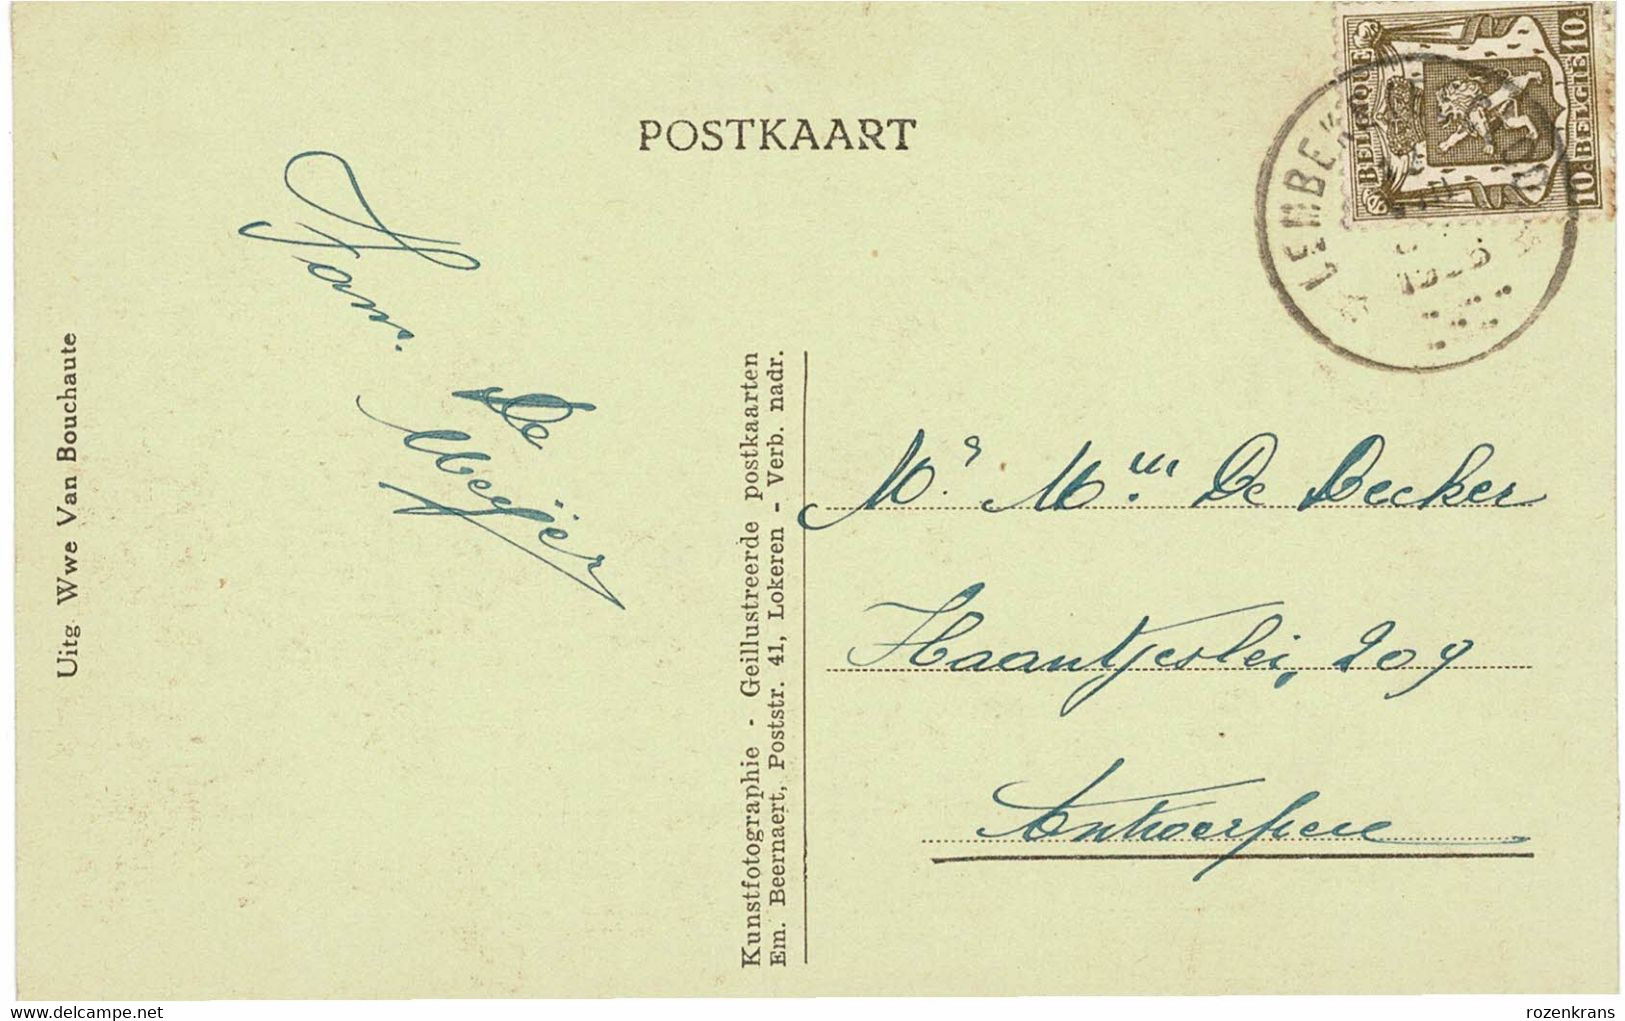 POSTKAART
BELGIQUE
10c BELGIE 10c
LEMBEKE
Fam. De
Meyer
Uitg. Wwe Van Bouchaute
Kunstfotographie - Geillustreerde postkaarten
Em. Beernaert, Poststr. 41, Lokeren - Verb. nadr.
Mr. Mm. De Decker
Haantjeslei, 209
Antwerpen
delcampe.net
rozenkrans